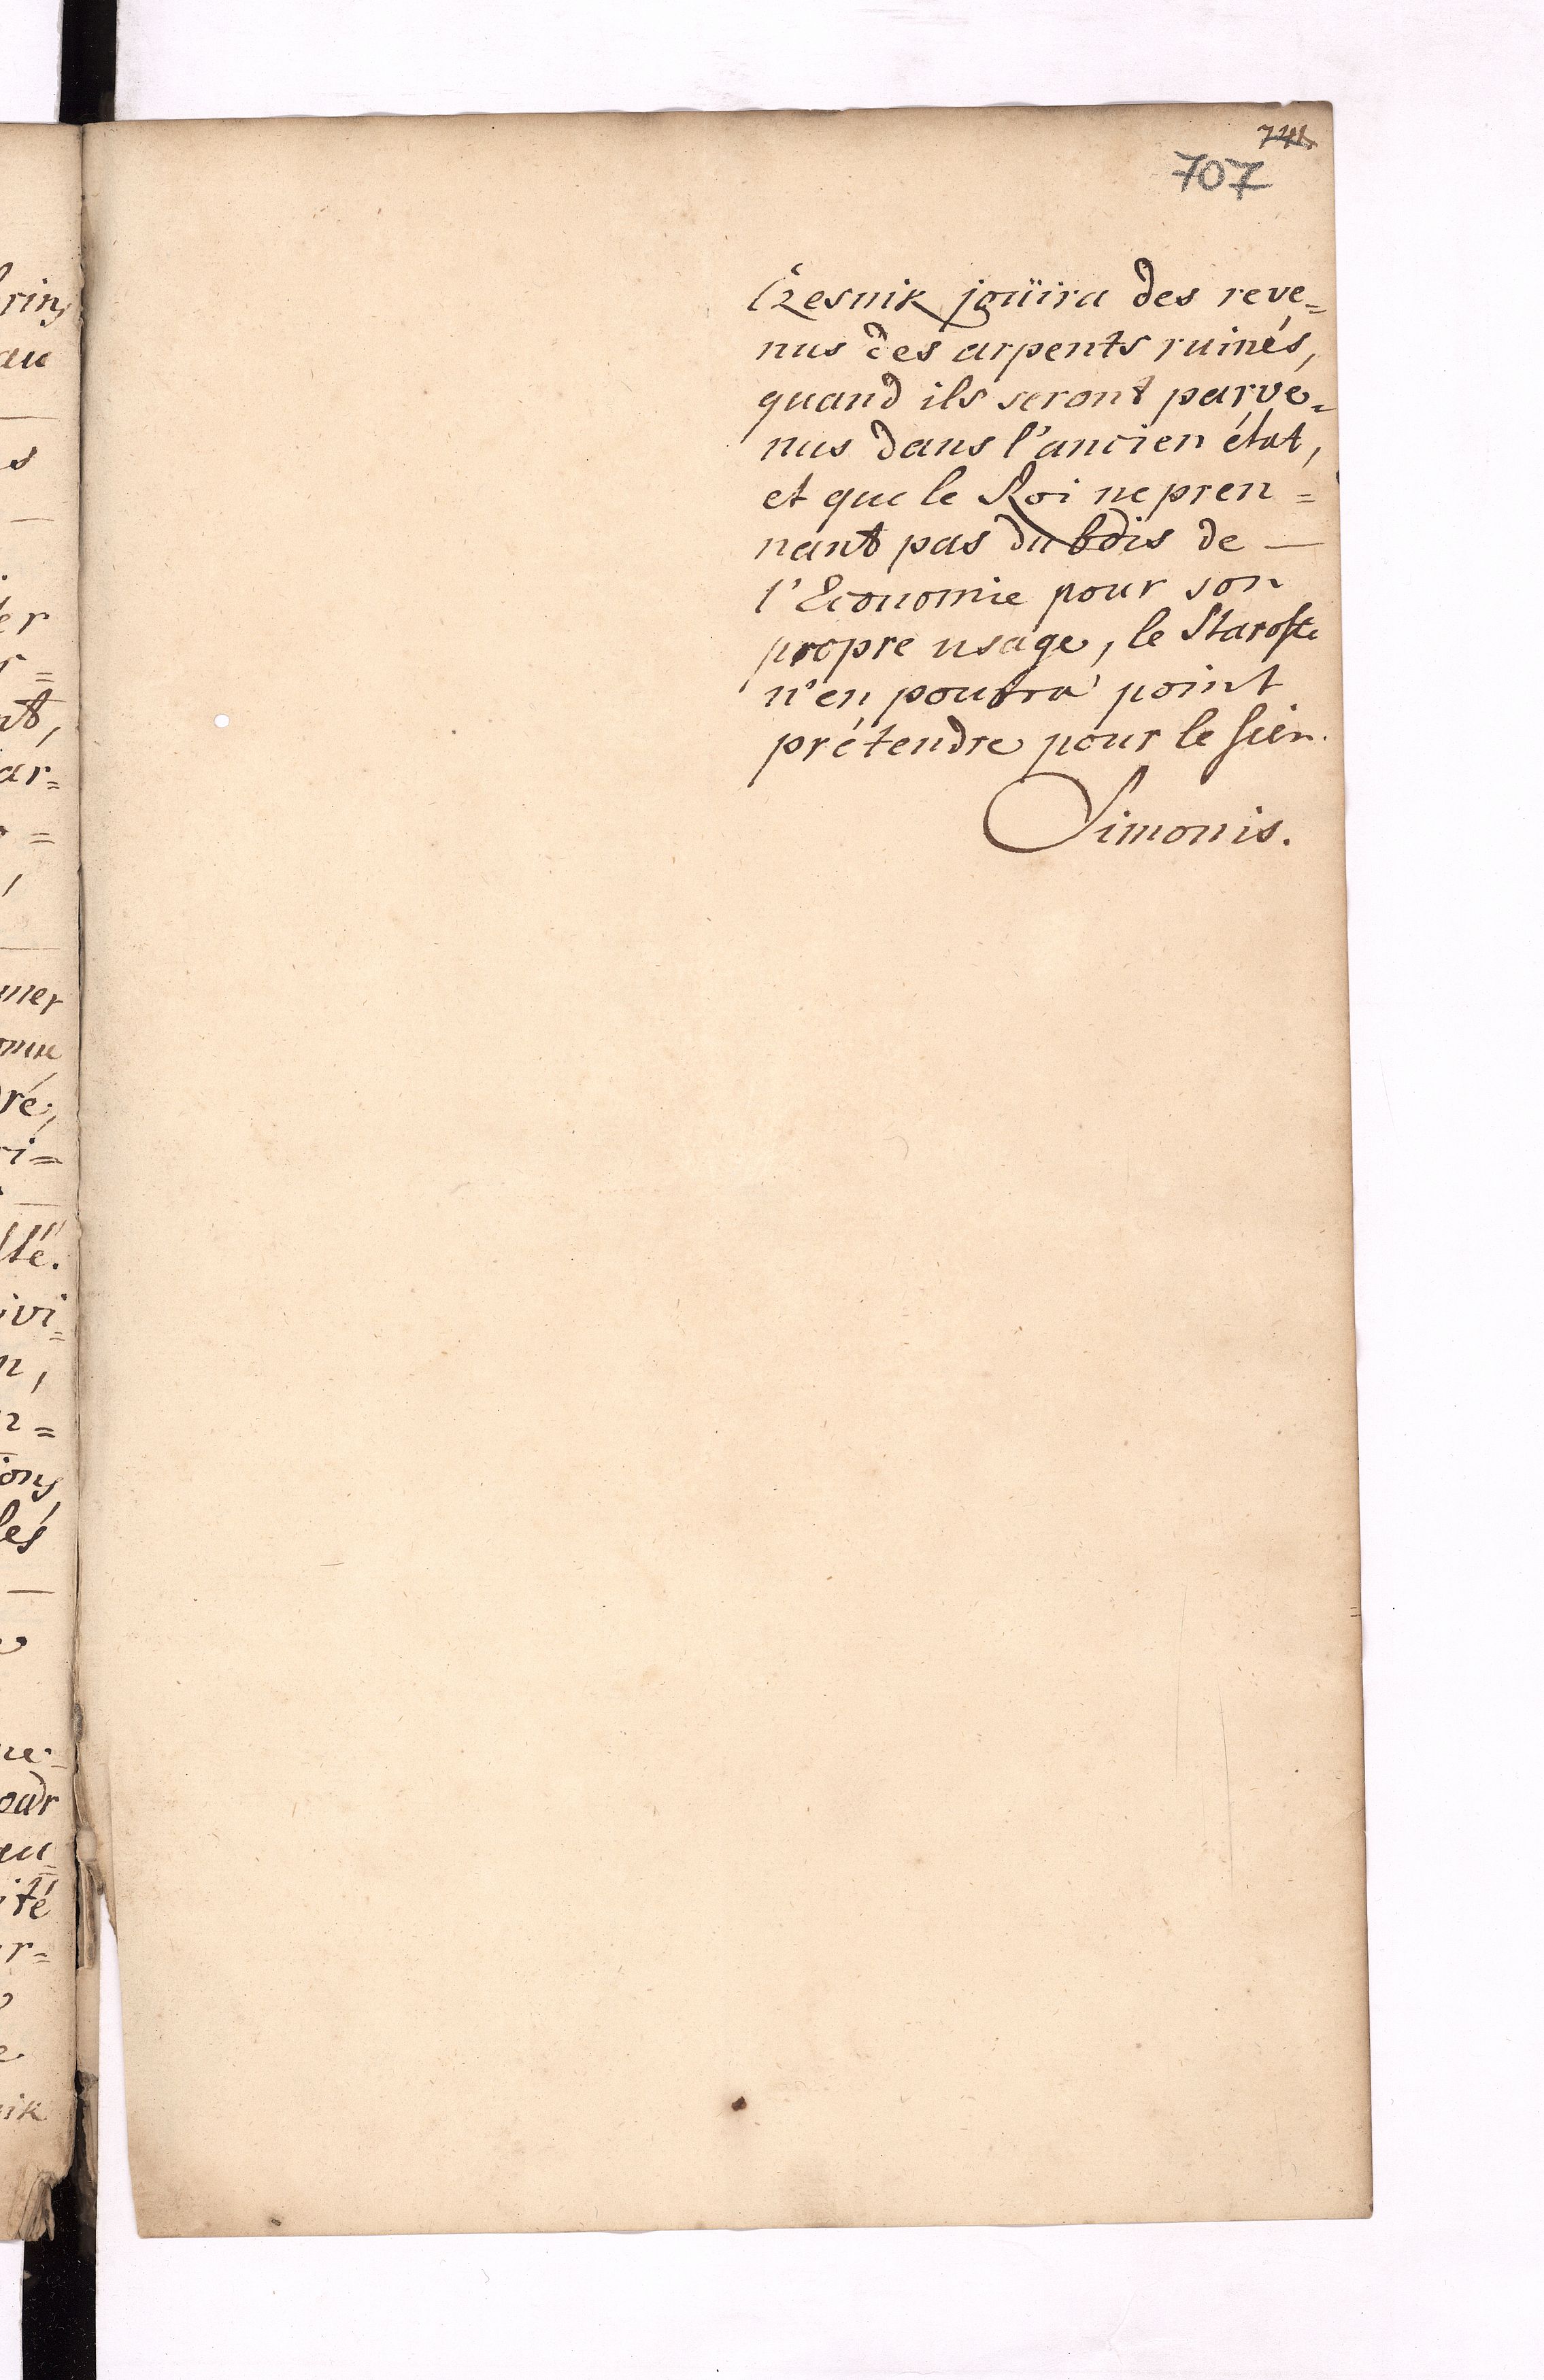 707
Czesnik joüira des reve=
nus des arpents ruinés,
quand ils seront parve=
nus dans l'ancien état,
et que le Roi ne pren=
nant pas du bois de —
l'Economie pour son
propre usage, le Staroste
n'en poudra point
prétendre pour le sien.
Simonis.